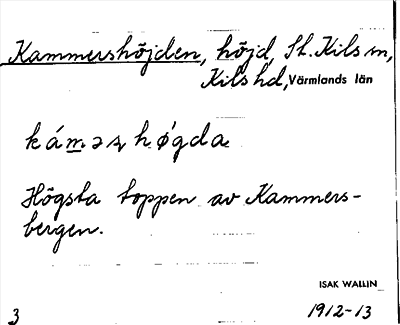 Kammershöjden, höjd, St. Kils sn,
Kils hd, Värmlands län
kámәʂhø̀gda
Högsta toppen av Kammers-
bergen.
ISAK WALLIN
3 1912-13